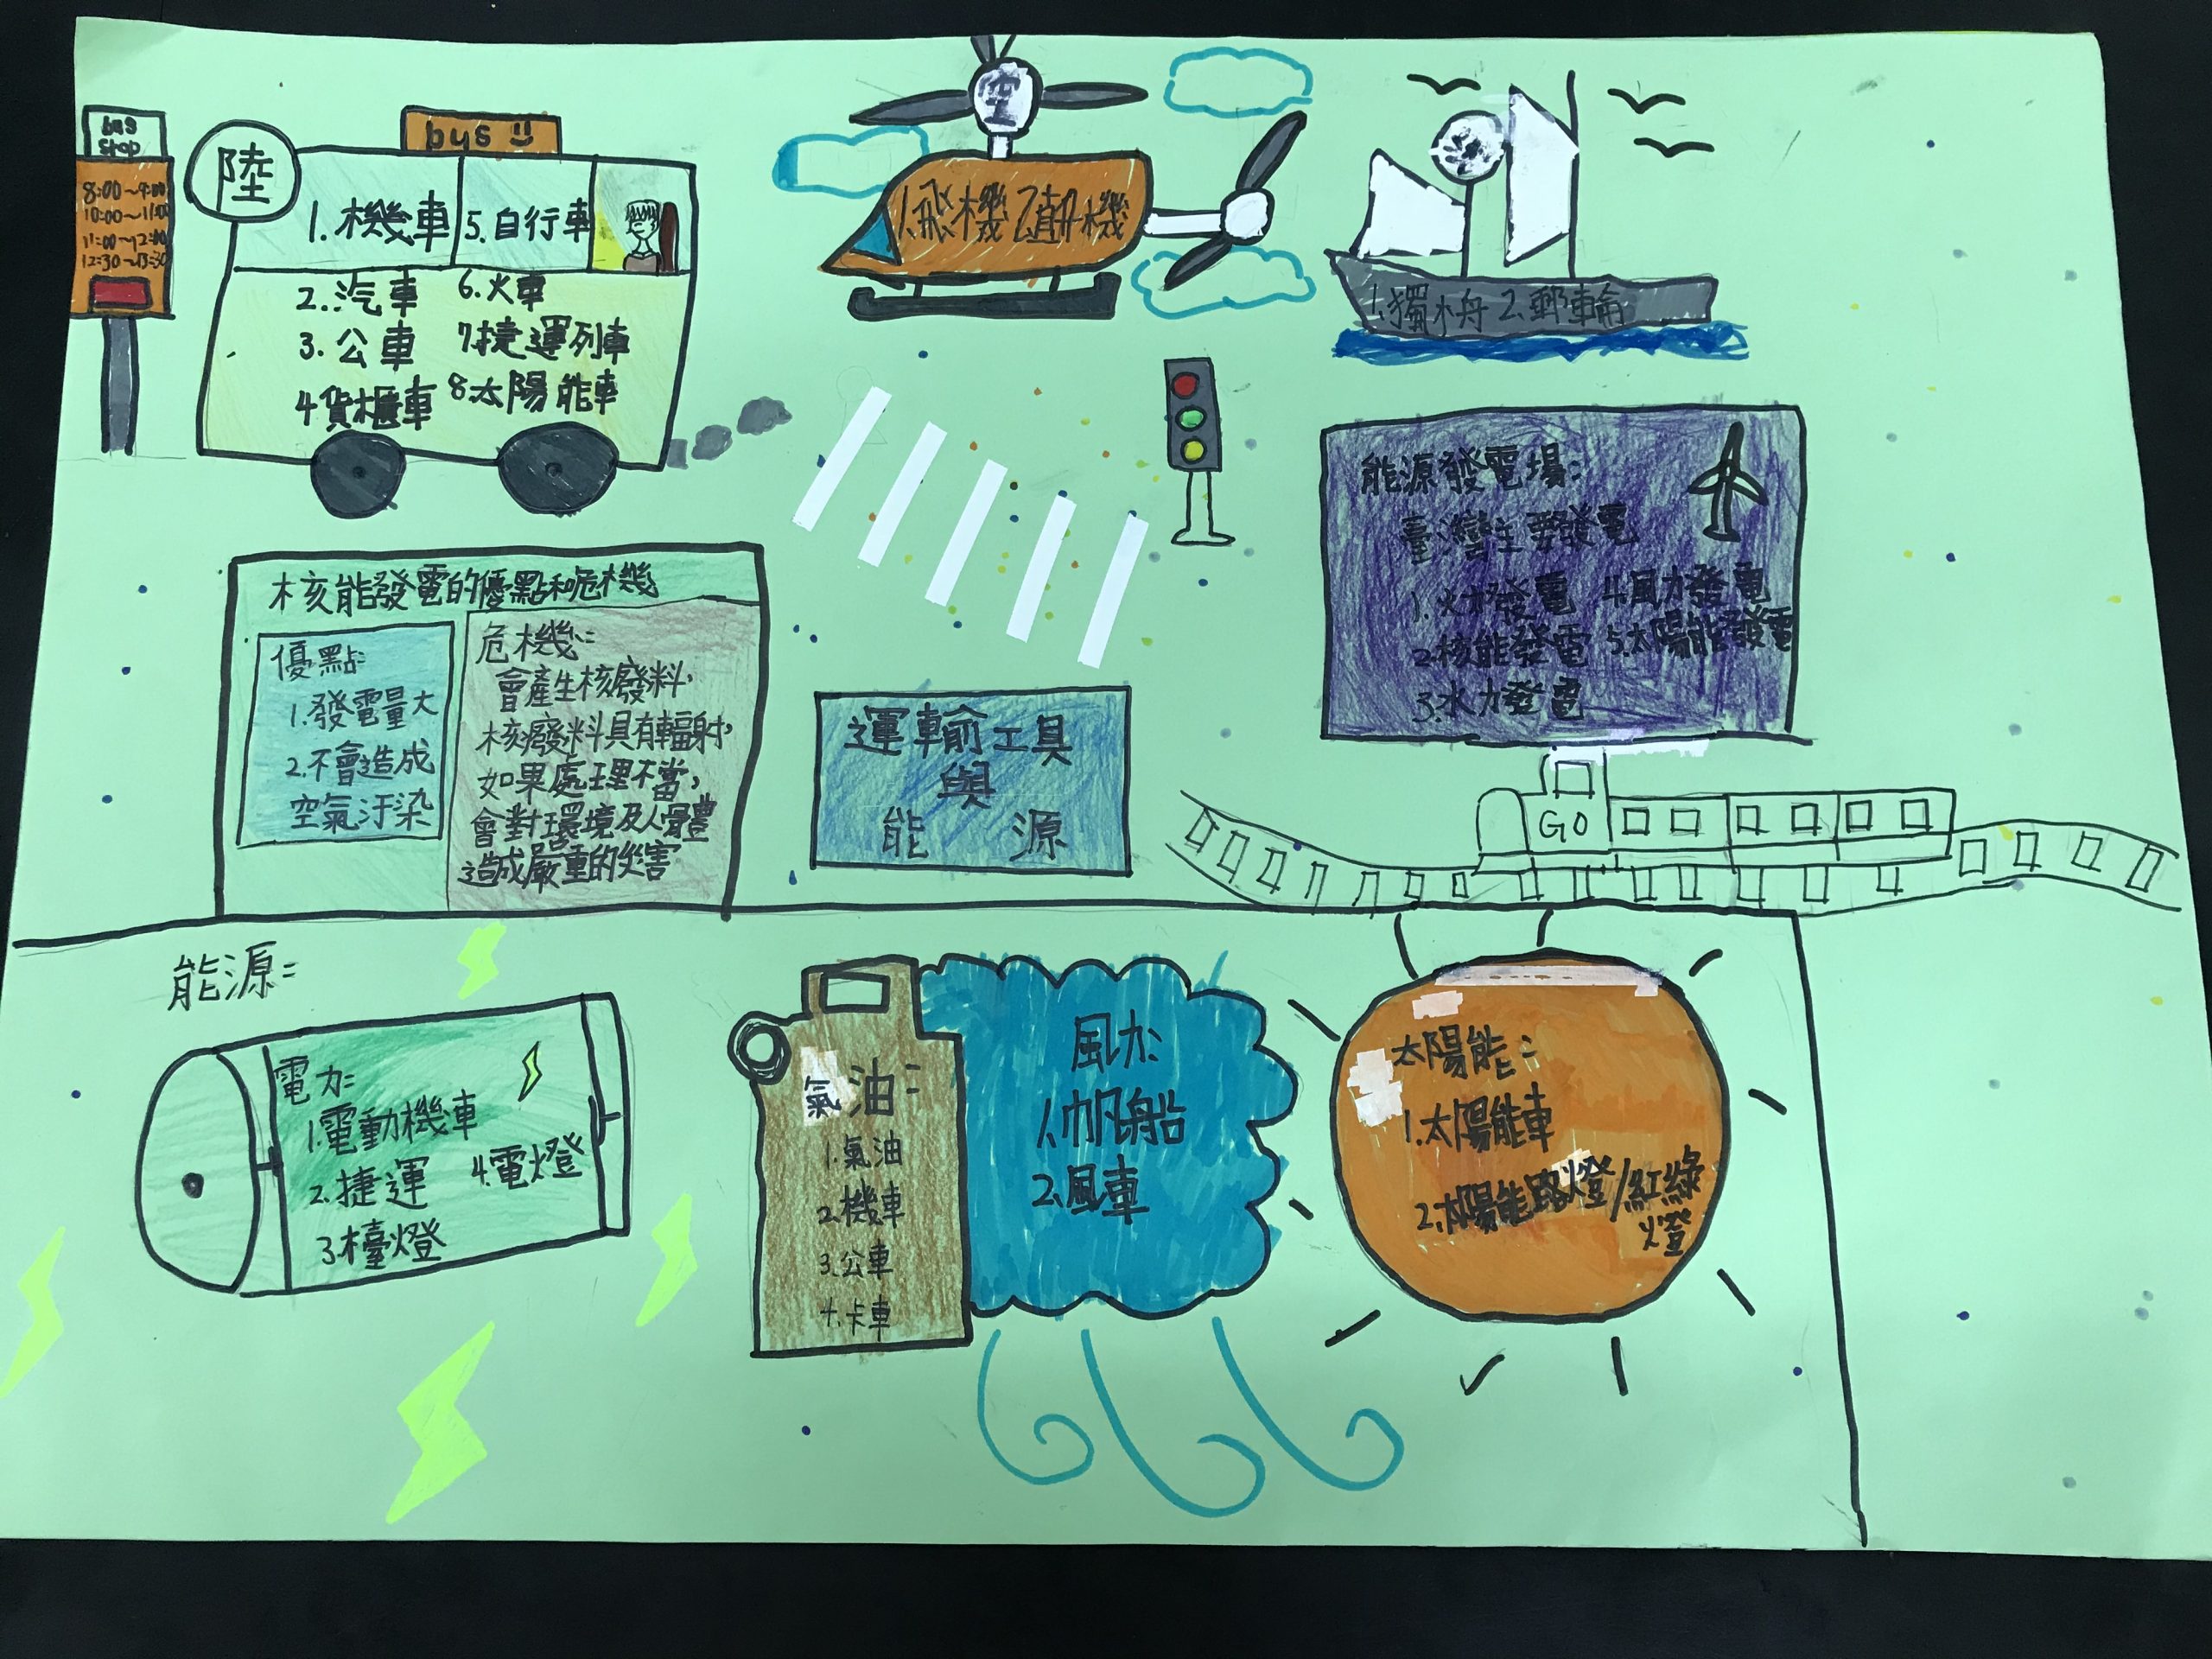 bus
stop
8:00~9:00
10:00~11:00
11:00~12:00
12:30~13:30
陸
bus
1.機車
2.汽車
3.公車
4貨櫃車
5.自行車
6.火車
7捷運列車
8太陽能車
空
1.飛機 2.直升機
海
1.獨木舟 2.郵輪
能源發電場:
臺灣主要發電
1.火力發電
2.核能發電
3.水力發電
4.風力發電
5.太陽能發電
核能發電的優點和危機
優點:
1.發電量大
2.不會造成
空氣汙染
危機:
會產生核廢料,
核廢料具有輻射,
如果處理不當,
會對環境及人體
造成嚴重的災害
運輸工具
與
能 源
GO
能源:
電力:
1.電動機車
2.捷運
3.檯燈
4.電燈
氣油:
1.氣油
2.機車
3.公車
4.卡車
風力:
1.帆船
2.風車
太陽能:
1.太陽能車
2.太陽能路燈/紅綠
燈